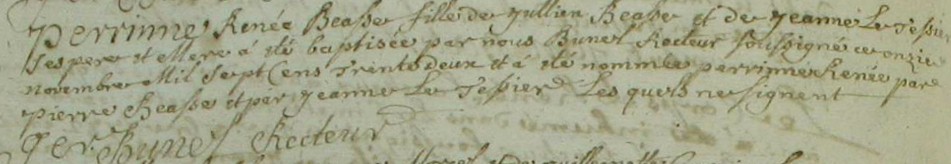 Perrinne Renée Beasse fille de Jullien Beasse et de Jeanne Le Tessier
ses pere et mere a été baptisée par nous Bunel Recteur soussigné ce onzie
novembre Mil Sept Cens Trente deux et a été nommée perrinne Renée par
Pierre Beasse et par Jeanne Le Tessier Les quels ne signent
Bunel Recteur